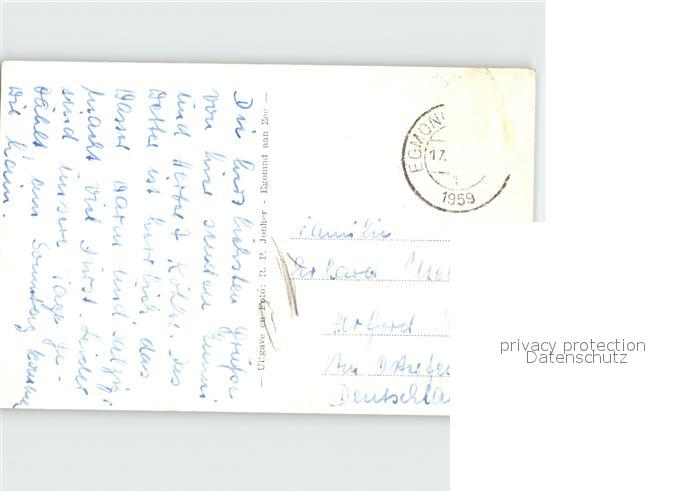 Die herzlichsten Grüße
von hier senden Hanni
und Herbert Köhler. Das
Wetter ist herrlich, das
Wasser warm und salzig
macht viel Durst. Leider
sind unsere Tage ge-
zählt am Sonntag kommen
wir heim.
— Uitgave en Foto: R. P. Jonker - Egmond aan Zee —
EGMON
17.
1
1959
Familie
Herford
Am
Deutschla
privacy protection
Datenschutz